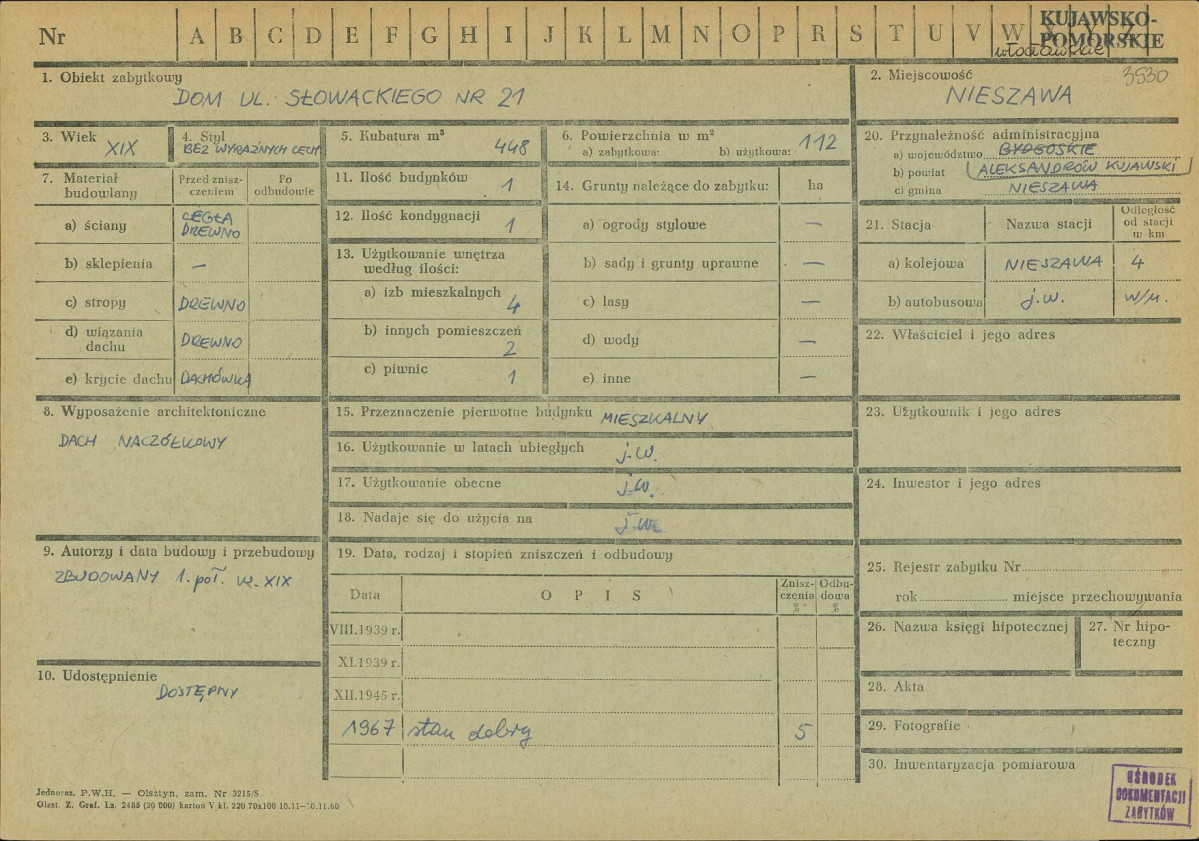 Nr A B C D E F G H I J K L M N O P R S T U V W
KUJAWSKO-
POMORSKIE
włocławskie
1. Obiekt zabytkowy
DOM UL. SŁOWACKIEGO NR 21
2. Miejscowość 3530
NIESZAWA
3. Wiek XIX
4. Styl
BEZ WYRAŹNYCH CECH
5. Kubatura m³ 448
6. Powierzchnia w m² 112
a) zabytkowa: b) użytkowa:
20. Przynależność administracyjna
a) województwo BYDGOSKIE
b) powiat ALEKSANDRÓW KUJAWSKI
c) gmina NIESZAWA
7. Materiał budowlany
Przed znisz-
czeniem
Po
odbudowie
a) ściany CEGŁA
DREWNO
b) sklepienia —
c) stropy DREWNO
d) wiązania
dachu DREWNO
e) krycie dachu DACHÓWKA
11. Ilość budynków 1
12. Ilość kondygnacji 1
13. Użytkowanie wnętrza
według ilości:
a) izb mieszkalnych 4
b) innych pomieszczeń 2
c) piwnic 1
14. Grunty należące do zabytku: ha
a) ogrody stylowe —
b) sady i grunty uprawne —
c) lasy —
d) wody —
e) inne —
21. Stacja Nazwa stacji
Odległość
od stacji
w km
a) kolejowa NIESZAWA 4
b) autobusowa j.w. w/m.
22. Właściciel i jego adres
8. Wyposażenie architektoniczne
DACH NACZÓŁKOWY
15. Przeznaczenie pierwotne budynku MIESZKALNY
16. Użytkowanie w latach ubiegłych j.w.
17. Użytkowanie obecne j.w.
18. Nadaje się do użycia na j.w.
23. Użytkownik i jego adres
24. Inwestor i jego adres
9. Autorzy i data budowy i przebudowy
ZBUDOWANY 1. poł. w. XIX
19. Data, rodzaj i stopień zniszczeń i odbudowy
Data O P I S
Znisz-
czenia
%
Odbu-
dowa
%
VIII.1939 r.
XI.1939 r.
XII.1945 r.
1967 stan dobry 5
25. Rejestr zabytku Nr
rok miejsce przechowywania
26. Nazwa księgi hipotecznej
27. Nr hipo-
teczny
10. Udostępnienie
DOSTĘPNY
28. Akta
29. Fotografie
30. Inwentaryzacja pomiarowa
OŚRODEK
DOKUMENTACJI
ZABYTKÓW
Jednoraz. P.W.H. — Olsztyn, zam. Nr 3215/S
Olszt. Z. Graf. Lz. 2485 (30 000) karton V kl. 220 70x100 10.11—30.11.60